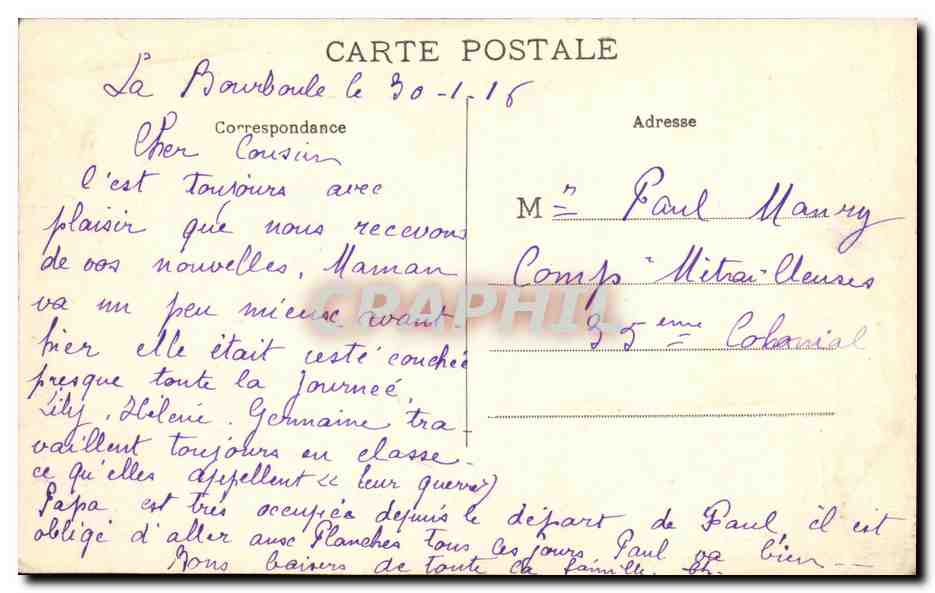 CARTE POSTALE
La Bourboule le 30-1-16
Correspondance
Cher Cousin
C'est toujours avec
plaisir que nous recevons
de vos nouvelles. Maman
va un peu mieux avant
hier elle était resté couchée
presque toute la journeé.
Lily, Hélène, Germaine tra
vaillent toujours en classe
ce qu'elles appellent « leur guerre »
Papa est très occupée depuis le départ de Paul, il est
obligé d'aller aux Planches tous les jours Paul va bien --
Bons baisers de toute la famille.
Adresse
Mr Paul Maury
Comp Mitrailleuses
35eme Colonial
CRAPHIL